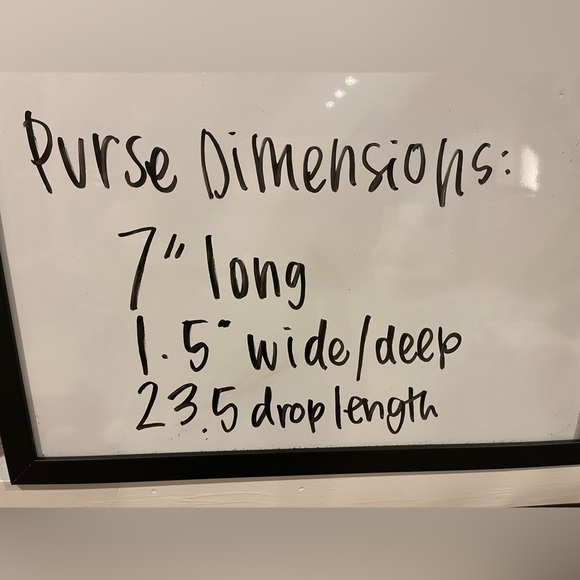 Purse Dimensions:
7" long
1.5" wide/deep
23.5 drop length